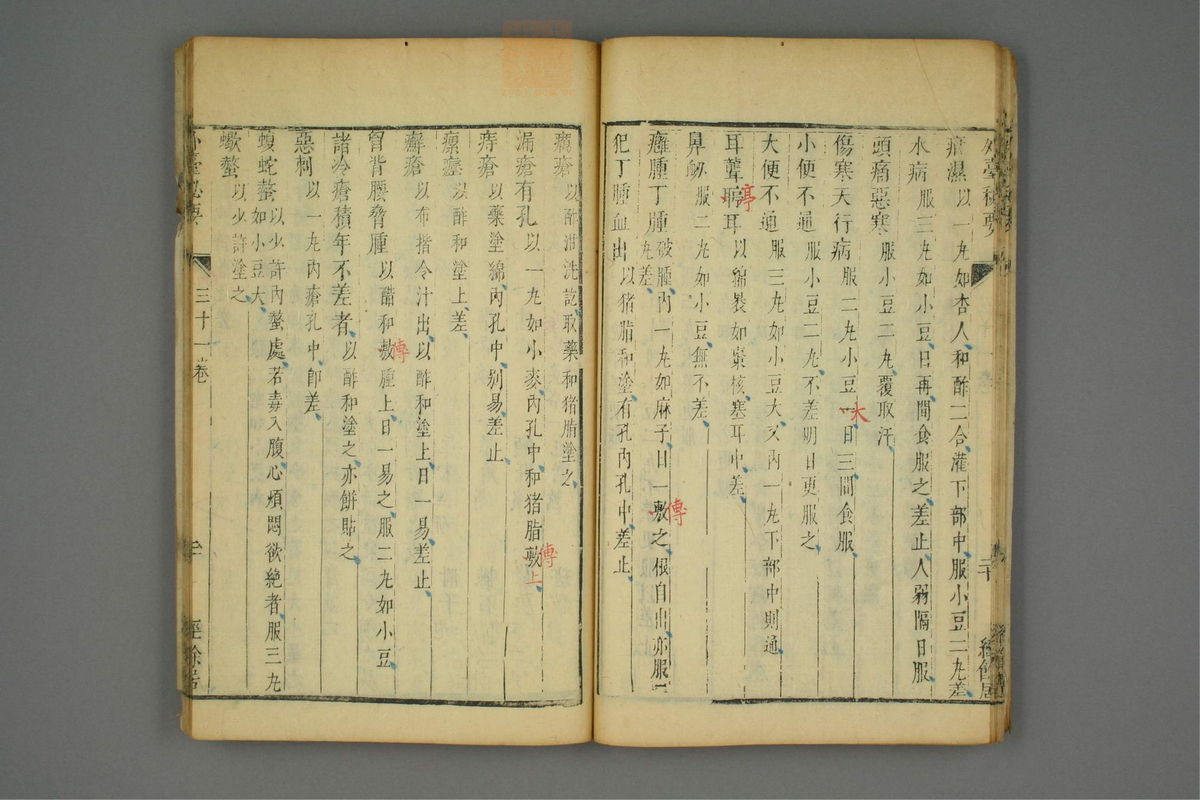 外臺秘要
疳濕以一丸如杏人和酢二合灌下部中服小豆二丸差
水病服三丸如小豆日再間食服之差止人弱隔日服
頭痛惡寒服小豆二丸覆取汗
傷寒天行病服二丸小豆一日三間食服
大
小便不通服小豆二丸不差明日更服之
大便不通服三丸如小豆大又內一丸下部中則通
耳聾聤耳以綿裝如棗核塞耳中差
亭
鼻衂服二丸如小豆無不差
癰腫丁腫破腫內一丸如麻子日一敷之根自出亦服二丸差
傅
犯丁腫血出以猪脂和塗有孔內孔中差止
二十
經餘居
癘瘡以酢泔洗訖取藥和猪脂塗之
漏瘡有孔以一丸如小麥內孔中和猪脂敷上
傅
痔瘡以藥塗綿內孔中別易差止
瘰癧以酢和塗上差
癬瘡以布揩令汁出以酢和塗上日一易差止
胷背腰脅腫以醋和敷腫上日一易之服二丸如小豆
傅
諸冷瘡積年不差者以酢和塗之亦餅貼之
惡刺以一丸內瘡孔中卽差
蝮蛇螫以少許內螫處若毒入腹心煩悶欲絶者服三丸如小豆大
蠍螫以少許塗之
外臺秘要
三十一卷
經餘居